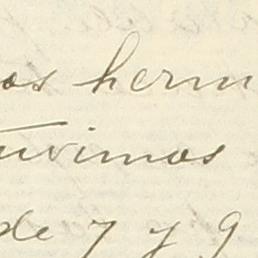 os herm
uvimos
de 7 y 9